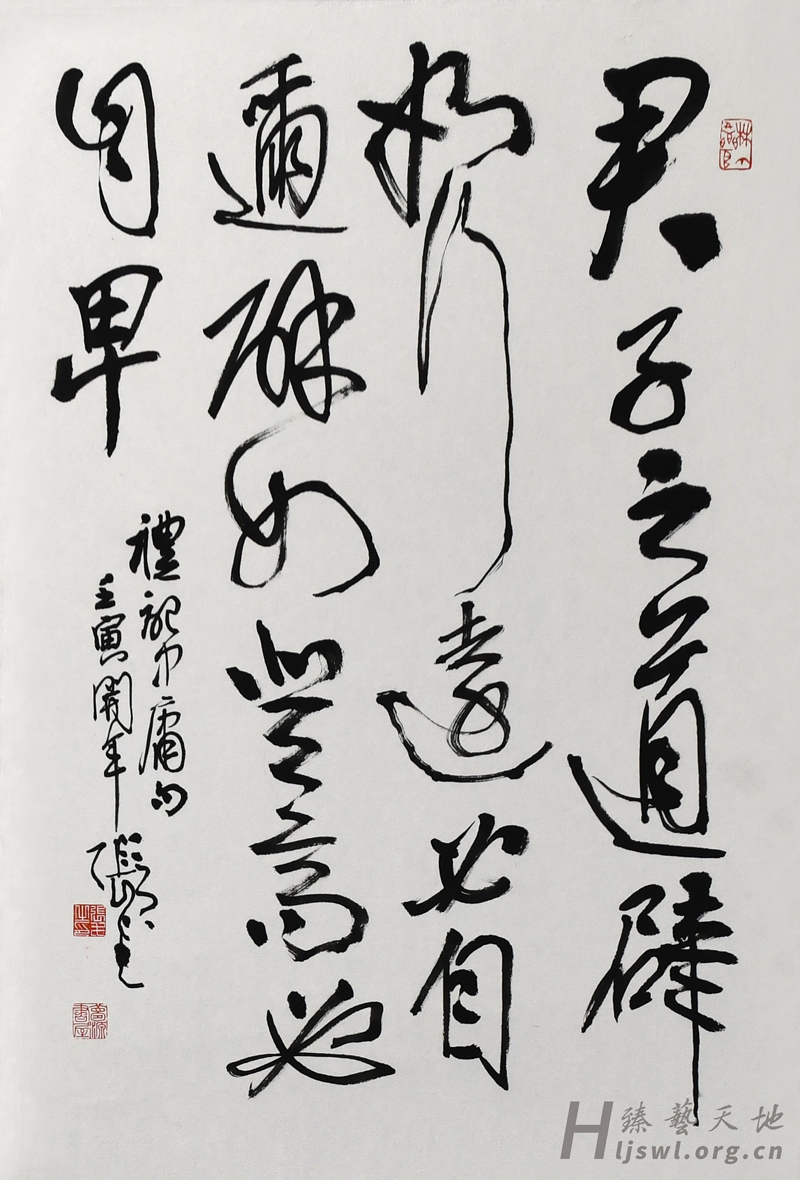 君子之道辟
如行遠必自
邇辟如登高必
自卑
禮記中庸句
壬寅開年 張
臻藝天地
ljswl.org.cn